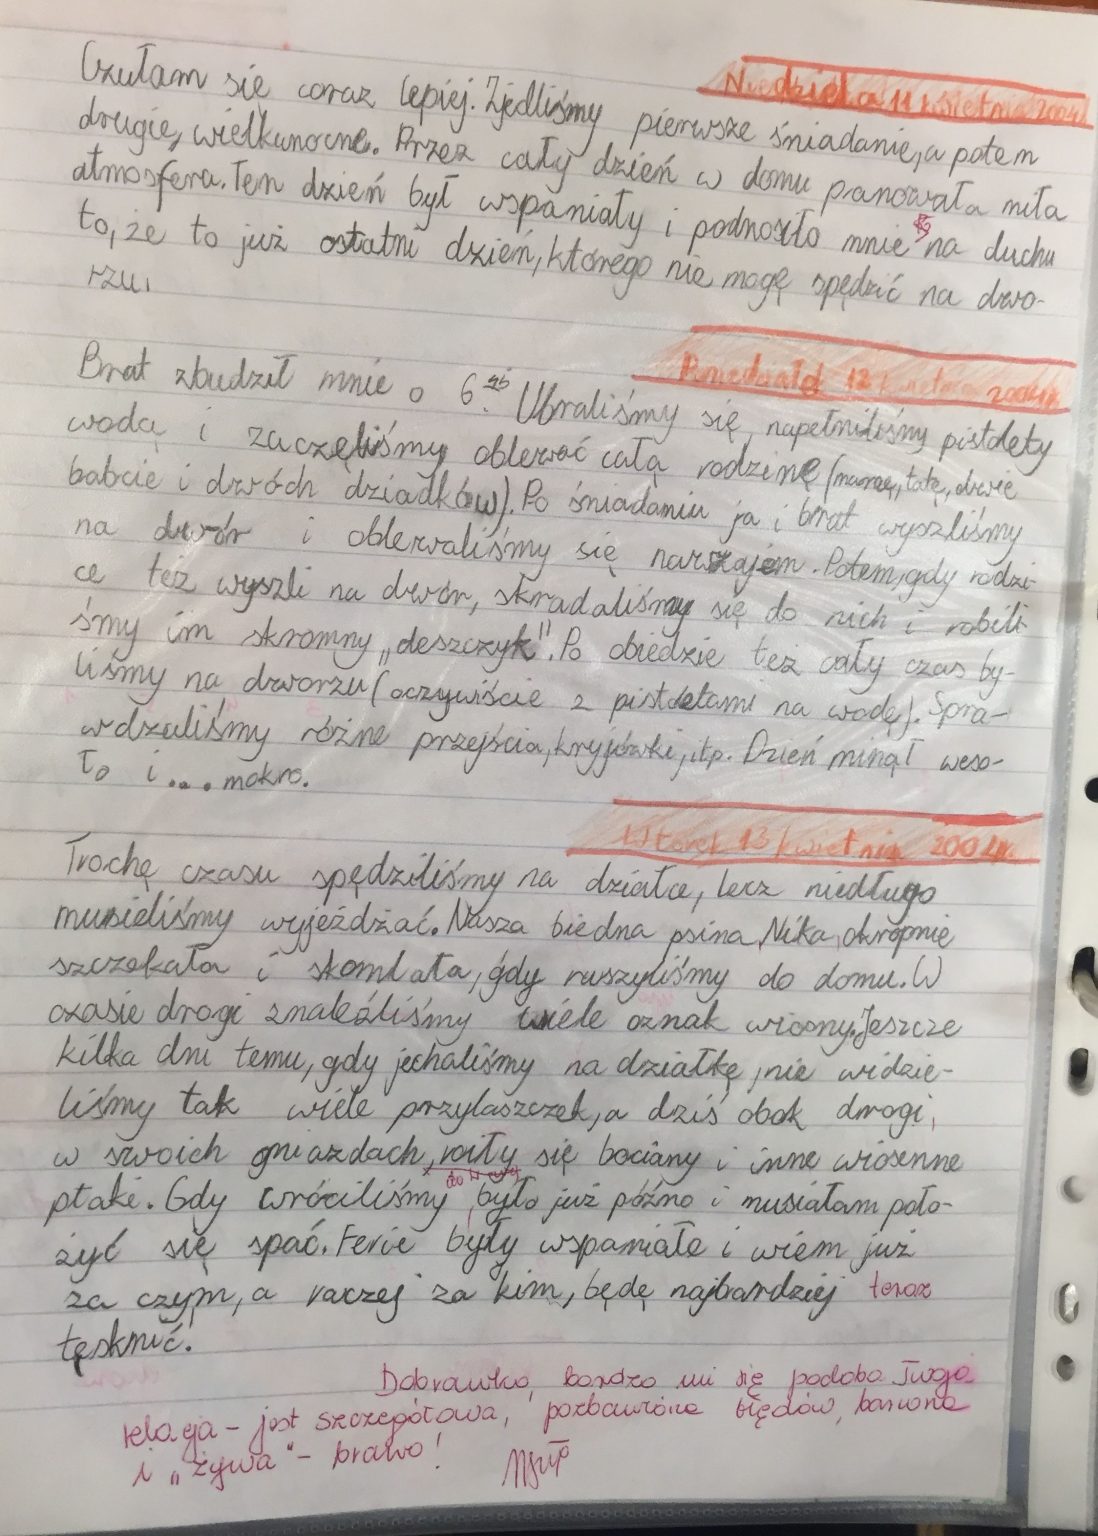 Niedziela 11 kwietnia 2004r.
Czułam się coraz lepiej. Zjedliśmy pierwsze śniadanie, a potem
drugie, wielkanocne. Przez cały dzień w domu panowała miła
atmosfera. Ten dzień był wspaniały i podnosiło mnie na duchu
to, że to już ostatni dzień, którego nie mogę spędzić na dwo-
rzu.
Poniedziałek 12 kwietnia 2004r.
Brat zbudził mnie o 6.45 Ubraliśmy się, napełniliśmy pistolety
wodą i zaczęliśmy oblewać całą rodzinę (mamę, tatę, dwie
babcie i dwóch dziadków). Po śniadaniu ja i brat wyszliśmy
na dwór i oblewaliśmy się nawzajem. Potem, gdy rodzi-
ce też wyszli na dwór, skradaliśmy się do nich i robili-
śmy im skromny „deszczyk". Po obiedzie też cały czas by-
liśmy na dworzu (oczywiście z pistoletami na wodę). Spra-
wdzaliśmy różne przejścia, kryjówki, itp. Dzień minął weso-
ło i... mokro.
Wtorek 13 kwietnia 2004r.
Trochę czasu spędziliśmy na działce, lecz niedługo
musieliśmy wyjeżdżać. Nasza biedna psina, Nika, okropnie
szczekała i skomlała, gdy ruszyliśmy do domu. W
czasie drogi znaleźliśmy wiele oznak wiosny. Jeszcze
kilka dni temu, gdy jechaliśmy na działkę, nie widzie-
liśmy tak wiele przylaszczek, a dziś obok drogi,
w swoich gniazdach, roiły się bociany i inne wiosenne
ptaki. Gdy wróciliśmy, było już późno i musiałam poło-
żyć się spać. Ferie były wspaniałe i wiem już
za czym, a raczej za kim, będę najbardziej teraz
tęsknić.
Dobrawko, bardzo mi się podoba Twoja
relacja - jest szczegółowa, pozbawiona błędów, barwna
i „żywa" - brawo!